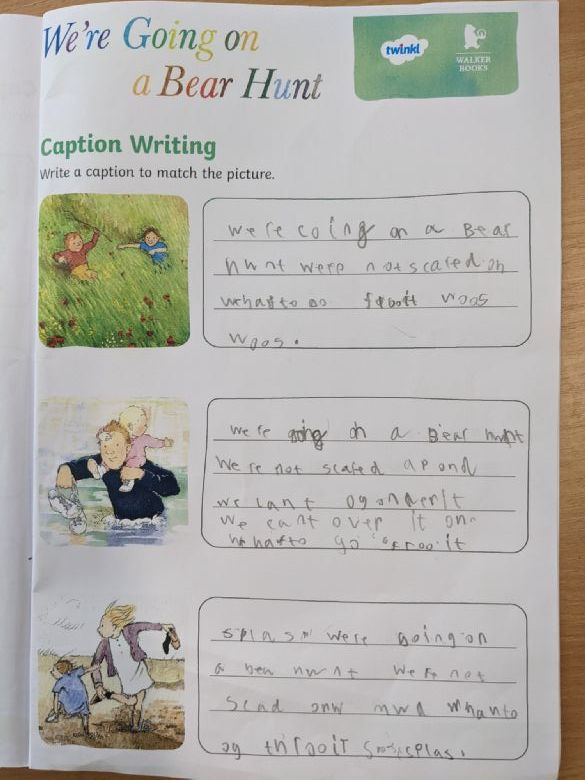 We're Going on
a Bear Hunt
twinkl
WALKER
BOOKS
Caption Writing
Write a caption to match the picture.
we're coing on a Bear
hunt were not scared oh
whafto go froott woos
woos.
we're going oh a Bear hunt
we're not scared a pond
we cant og onderit
we cant over it one
whafto go froo it
splash were going on
a bea hunt were not
scad mud whanto
og throoit splas.